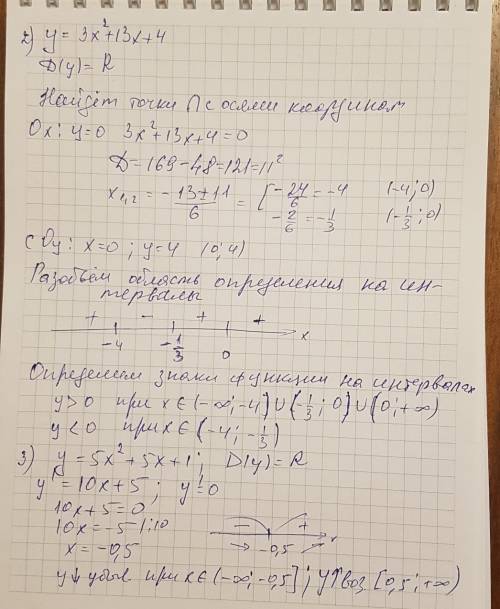 2) y = 3x²+13x+4
D(y)= R
Найдём точки ∩ с осями координат
Ox: y=0 3x²+13x+4=0
D=169-48=121=11²
x₁,₂ = -13±11/6 = [ -24/6 = -4 (-4; 0)
-2/6 = -1/3 (-1/3; 0)
с Oy: x=0; y=4 (0; 4)
Разобьём область определения на ин-
тервалы
+ - + +
-4 -1/3 0 x
Определим знаки функции на интервалах
y>0 при x∈(-∞; -4) ∪ (-1/3; 0) ∪ (0; +∞)
y<0 при x∈(-4; -1/3)
3) y = 5x²+5x+1; D(y)= R
y' = 10x+5; y'=0
10x+5=0
10x=-5 |:10
x=-0,5
- + x
→ -0,5 →
y↓ убыв при x∈(-∞; -0,5]; y↑ воз. [0,5; +∞)